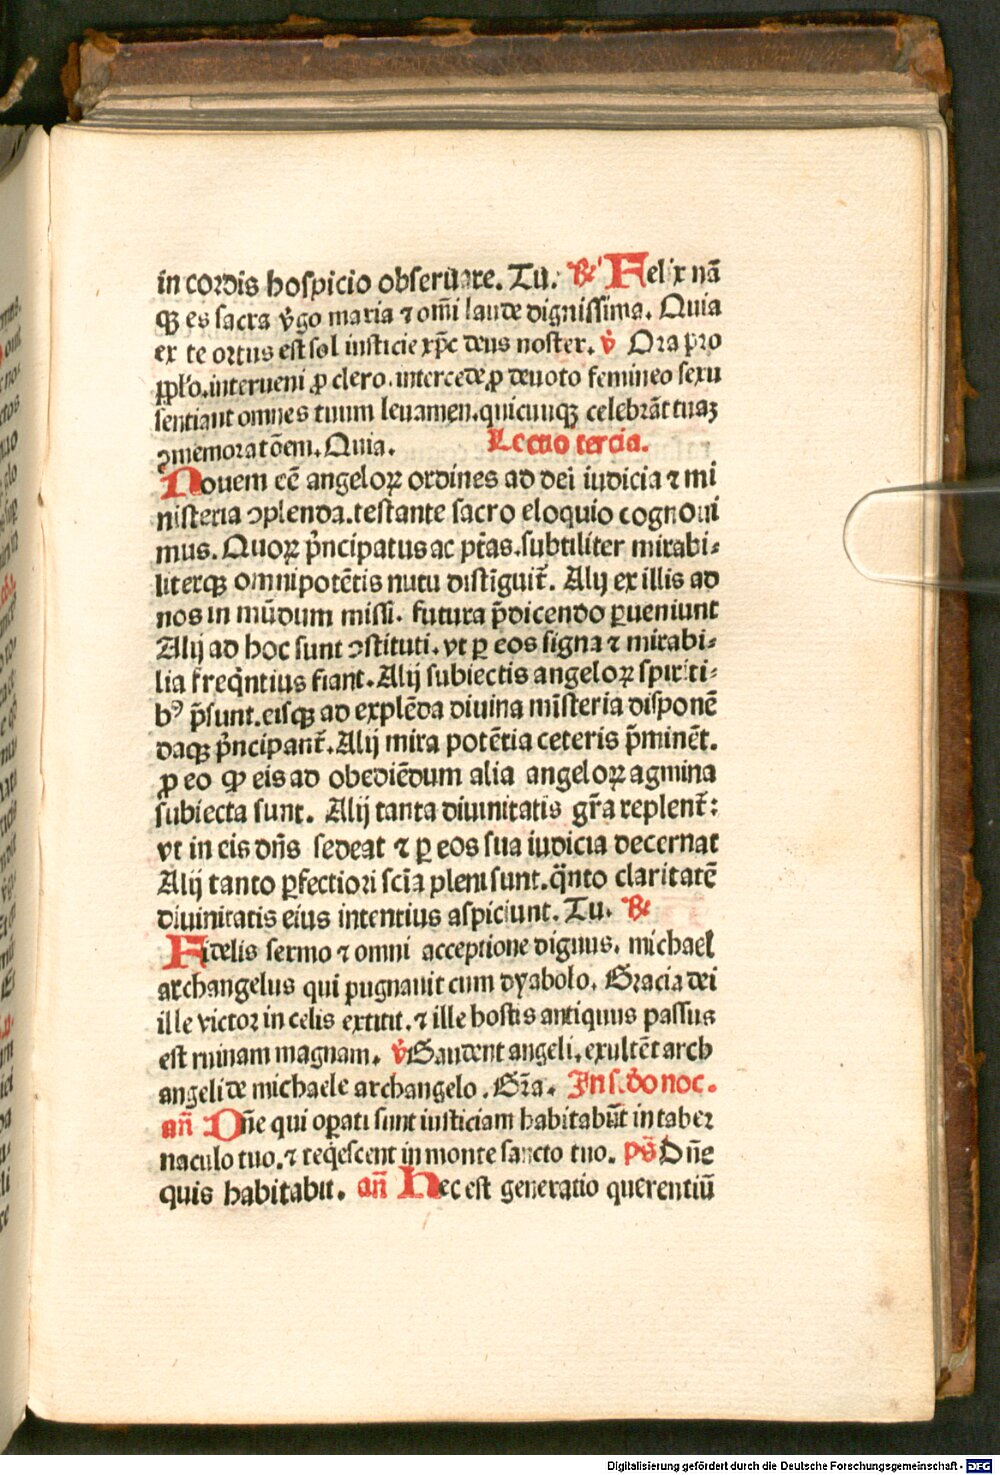 in cordis hospicio obseruare. Tu. ℟ Felix nā
ꝙ es sacra v̓go maria ⁊ om̄i laude dignissima. Quia
ex te ortus est sol iusticie xp̄c deus noster. ℣ Ora pro
pp̄lo. interueni ꝓ clero. intercede ꝓ deuoto femineo sexu
sentiant omnes tuum leuamen. quicunqꝫ celebrāt tuaꝫ
ꝯmemoratōem. Quia. Lectio tercia.
Nouem eē angeloꝝ ordines ad dei iudicia ⁊ mi
nisteria ꝯplenda. testante sacro eloquio cognoui
mus. Quoꝝ p̄ncipatus ac ptās. subtiliter mirabi⸗
literqꝫ omnipotētis nutu distīguit̄. Alij ex illis ad
nos in mūdum missi. futura p̄dicendo ꝑueniunt
Alij ad hoc sunt ꝯstituti. vt ꝑ eos signa ⁊ mirabi⸗
lia freq̄ntius fiant. Alij subiectis angeloꝝ spiriti⸗
bꝰ p̄sunt. eisqꝫ ad explēda diuina mīsteria disponē
daqꝫ p̄ncipant̄. Alij mira potētia ceteris p̄minēt.
ꝓ eo ꝙ eis ad obediēdum alia angeloꝝ agmina
subiecta sunt. Alij tanta diuinitatis gr̄a replent̄:
vt in eis dn̄s sedeat ⁊ ꝑ eos sua iudicia decernat
Alij tanto ꝑfectiori scīa pleni sunt. q̄nto claritatē
diuinitatis eius intentius aspiciunt. Tu. ℟
Fidelis sermo ⁊ omni acceptione dignus. michael
archangelus qui pugnauit cum dyabolo. Gracia dei
ille victor in celis extitit. ⁊ ille hostis antiquus passus
est ruinam magnam. ℣ Gaudent angeli. exultēt arch
angeli de michaele archangelo. Gr̄a. In s. do noc.
an̄ Dn̄e qui oꝑati sunt iusticiam habitabūt in taber
naculo tuo. ⁊ req̄escent in monte sancto tuo. ps̄ Dn̄e
quis habitabit. an̄ Hec est generatio querentiū
Digitalisierung gefördert durch die Deutsche Forschungsgemeinschaft - DFG